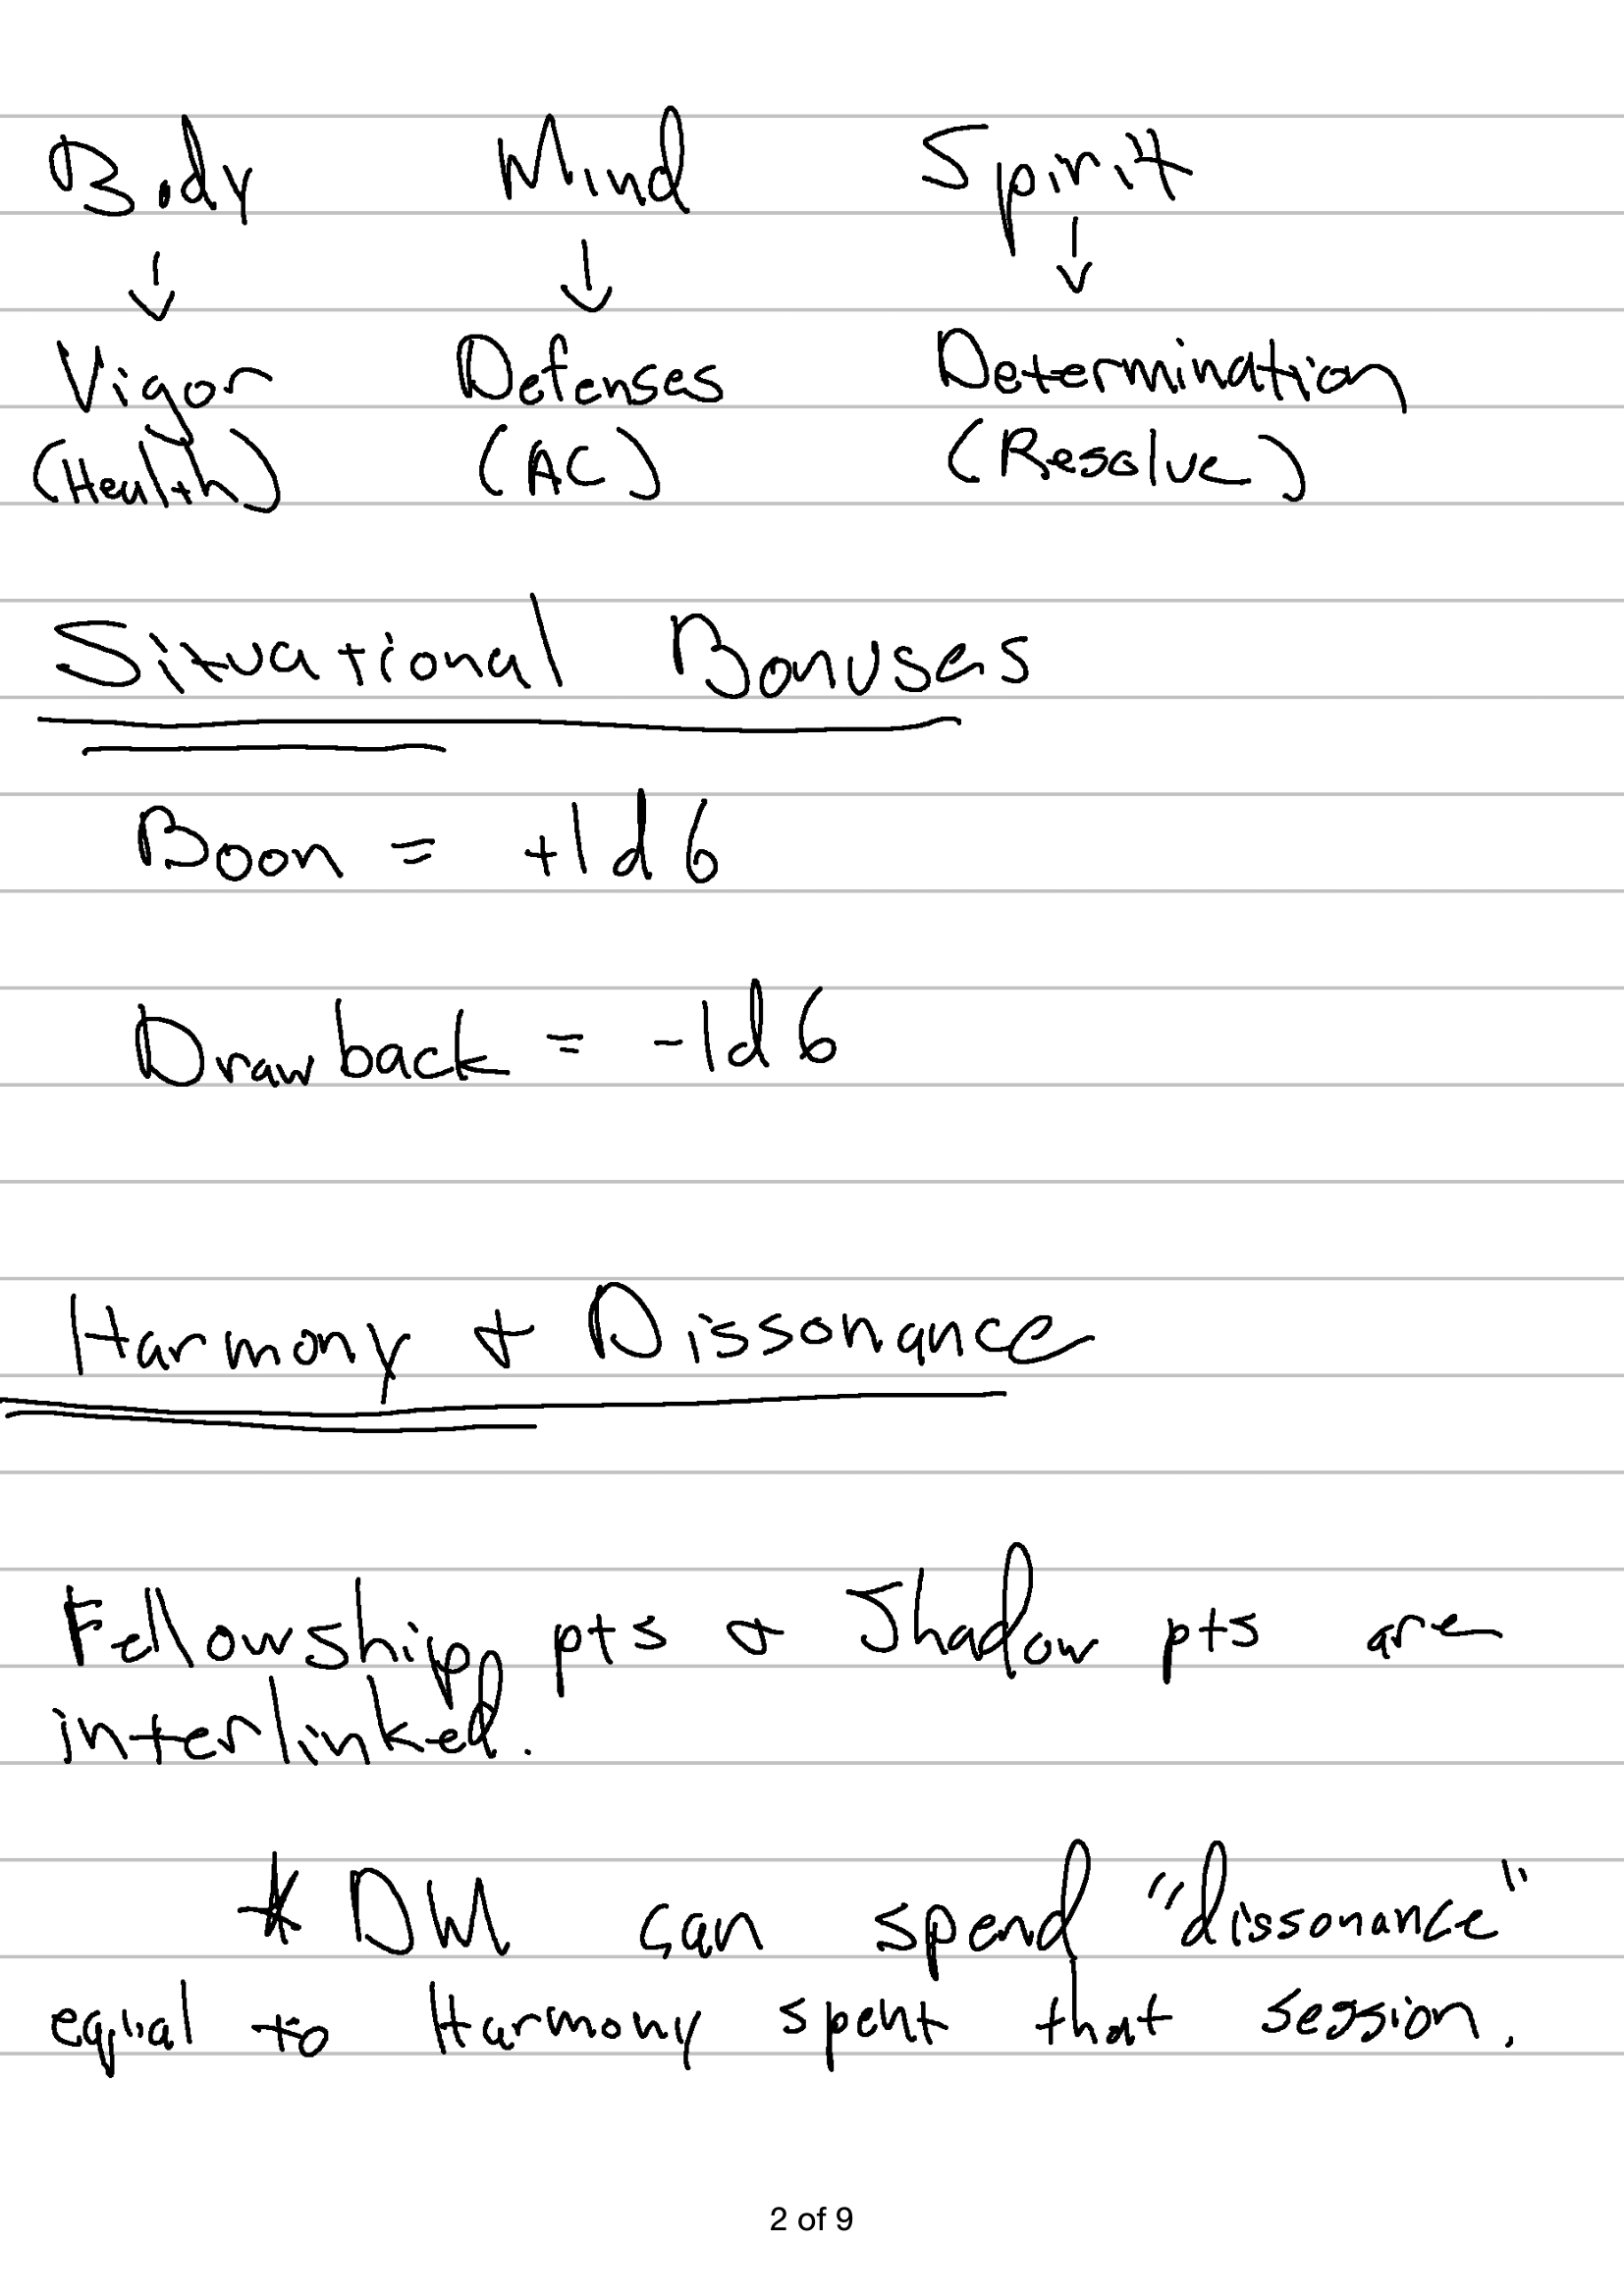 Body Mind Spirit
↓ ↓ ↓
Vigor Defenses Determination
(Health) (AC) (Resolve)
Situational Bonuses
Boon = +1d6
Drawback = -1d6
Harmony & Dissonance
Fellowship pts & Shadow pts are
interlinked.
* DM can spend "dissonance"
equal to Harmony spent that session.
2 of 9